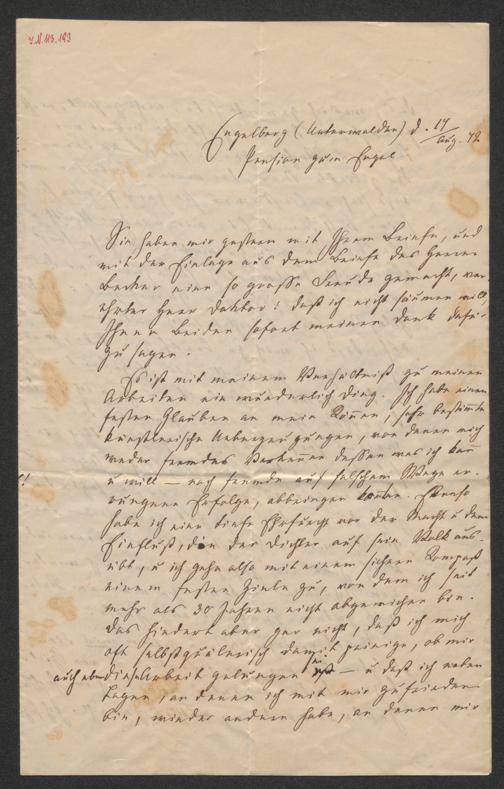 I.N. 113.193
Engelberg (Unterwalden) d. 17/Aug. 72
Pension zum Engel
Sie haben mir gestern mit Ihrem Briefe, und
mit der Einlage aus dem Briefe des Herrn
Becker eine so grosse Freude gemacht, ver-
ehrter Herr Doktor! daß ich nicht säumen will,
Ihnen Beiden sofort meinen Dank dafür
zu sagen.
Es ist mit meinem Verhältniß zu meinen
Arbeiten ein wunderlich Ding. Ich habe einen
festen Glauben an mein Können, sehr bestimmte
künstlerische Ueberzeugungen, von denen mich
weder fremdes Verkennen dessen was ich kann
u will — noch fremde auf falschem Wege er-
rungene Erfolge, abbringen können. Ebenso
habe ich eine tiefe Ehrfurcht vor der Macht u dem
Einfluß, den der Dichter auf sein Volk aus-
übt, u ich gehe also mit einem sichern Kompaß
einem festen Ziele zu, von dem ich seit
mehr als 30 Jahren nicht abgewichen bin.
Das hindert aber gar nicht, daß ich mich
oft selbstquälerisch damit peinige, ob mir
auch eben diese Arbeit gelungen sei — u daß ich neben
Tagen, an denen ich mit mir zufrieden
bin, wieder andere habe, an denen mir